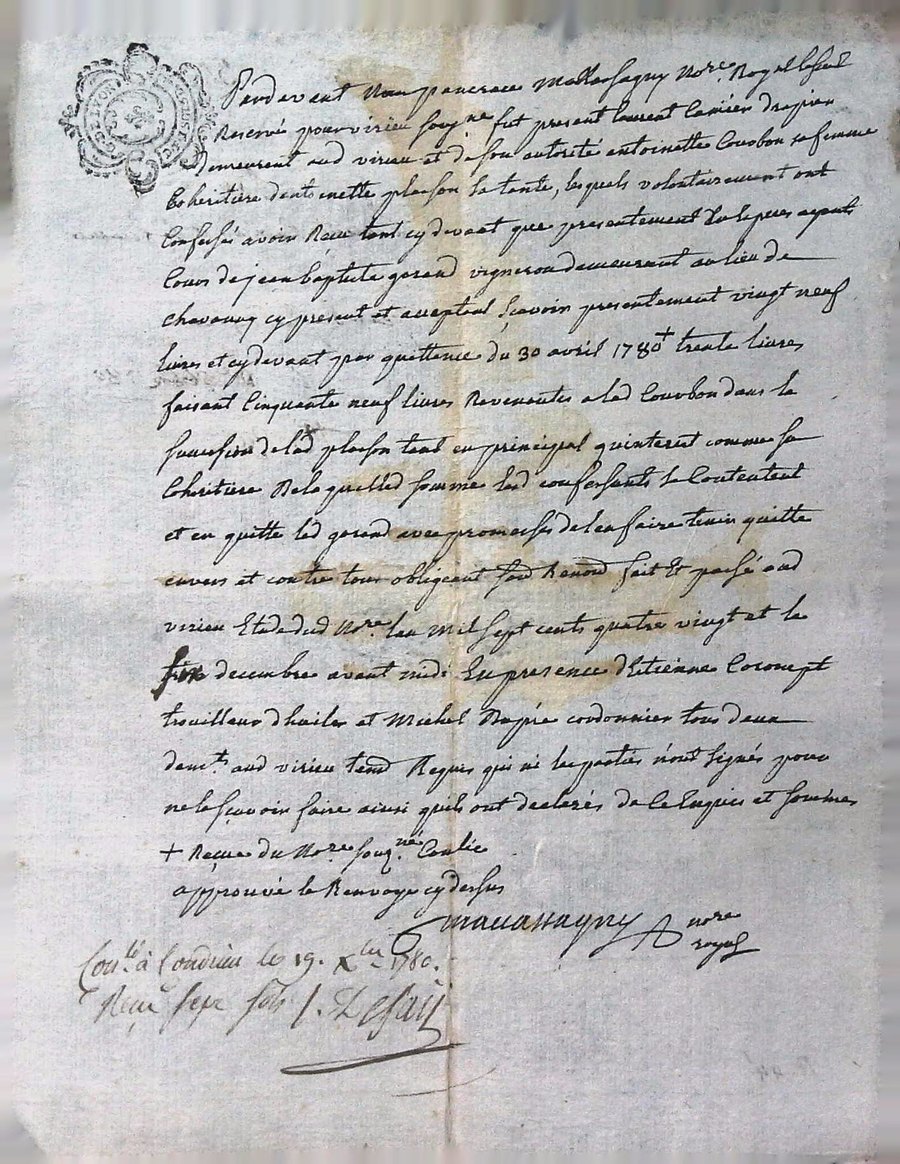 Pardevant Nous pancrace Mallassagny No.re Royal le seul
Reservé pour virieu sousg.ne fut present laurent Camier drapier
Demeurent aud virieu et de son autorité antoinette Courbon sa femme
Coheritiere dantoinette plasson sa tante, lesquels volontairement ont
Confessé avoir Reçu tant cy devant que presentement En Especes ayants
Cours de jean baptiste gerand vigneron demeurant au lieu de
chavanay cy present et acceptant Sçavoir presentement vingt neuf
livres et cydevant par quittance du 30 avril 1780 + trente livres
faisant Cinquante neuf livres Revenantes a lad Courbon dans la
succession de lad plasson tant en principal qu'interest comme sa
Coheritiere De laquelled somme lesd confessants se Contentent
et en quitte led gerand avec promesses de l'en faire tenir quitte
envers et contre tous obligeant soud Renond fait Et passé aud
virieu Etude dud No.re lan Mil sept cents quatre vingt et le
six decembre avant midi En presence d'Etienne Corompt
trouilleur d'huiles et Michel cordonnier tous deux
dem.ts aud virieu temd Requis qui ni les parties n'ont Signés pour
ne le sçavoir faire ainsi quils ont declarés de ce Enquis et sommés
+ Reçue du No.re souz.né Contie
approuvé le Renvoye cy dessus
Mallassagny no.re
royal
Con.lé à Condrieu le 19. X.bre 1780.
Reçu sept sols